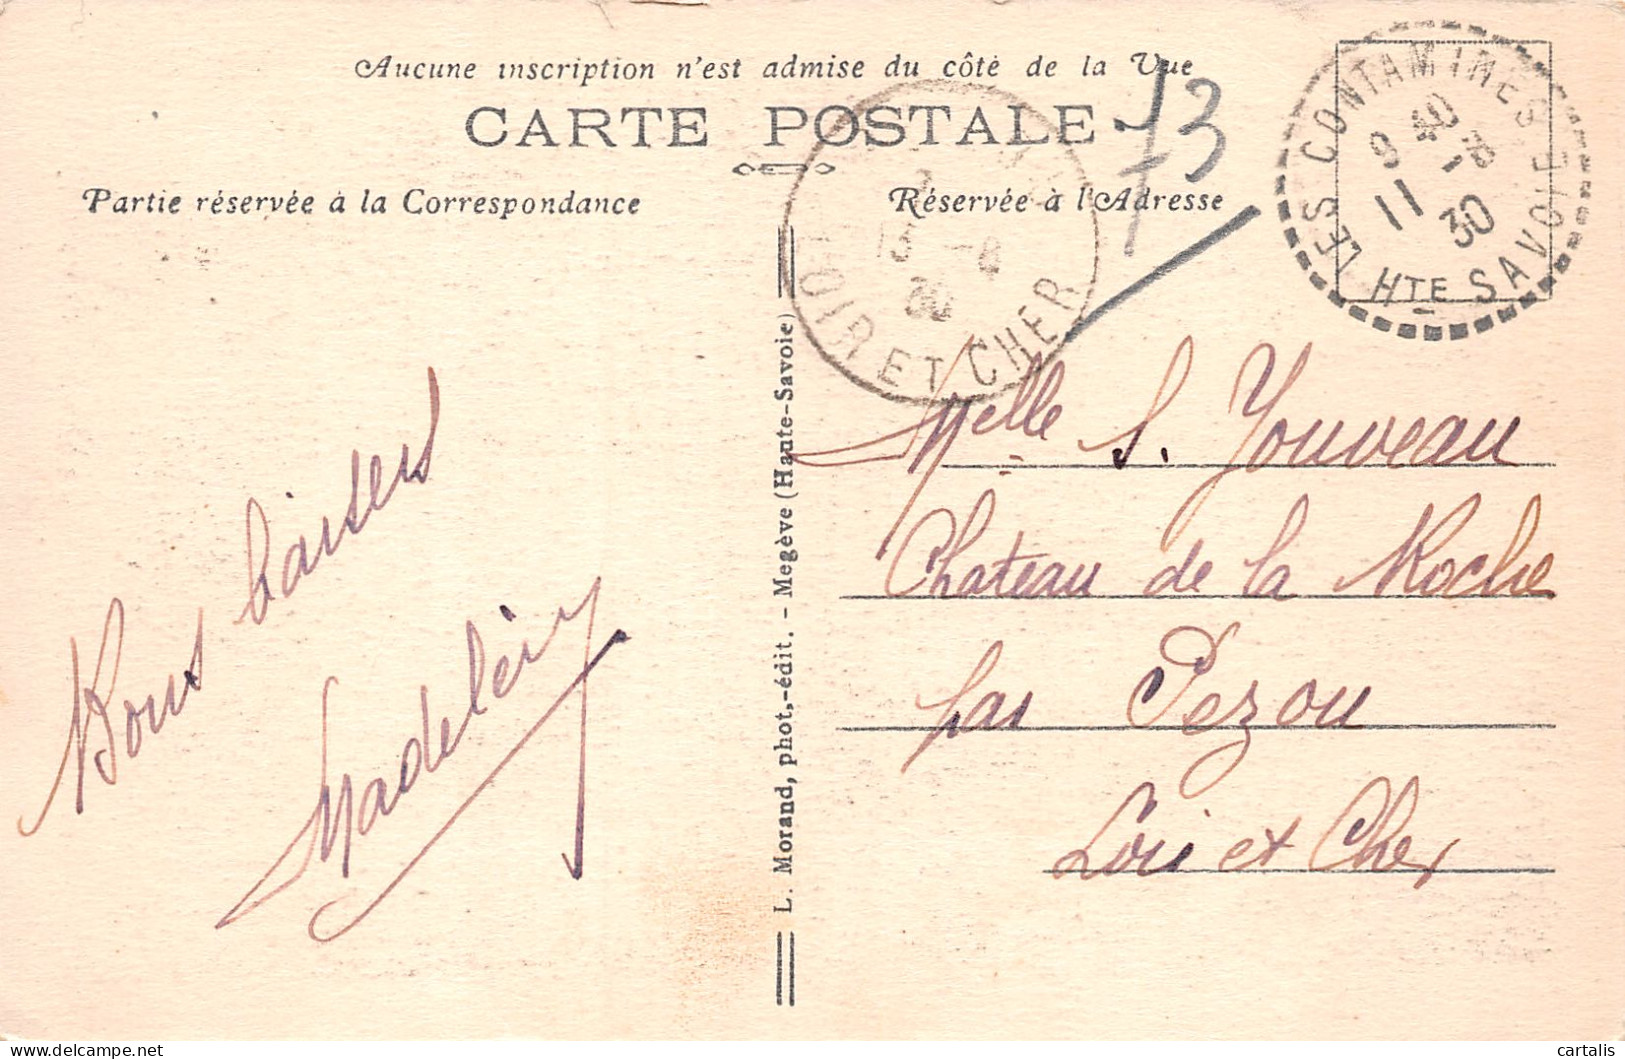 Aucune inscription n'est admise du côté de la Vue
CARTE POSTALE
Partie réservée à la Correspondance
Réservée à l'Adresse
73
LES CONTAMINES
9 40
11 30
HTE SAVOIE
13 -8
30
LOIR ET CHER
Bons baisers
Madelény
L. Morand, phot.-édit. - Megève (Haute-Savoie)
Melle S. Jouveau
Chateau de la Roche
par Pezou
Loir et Cher
cartalis